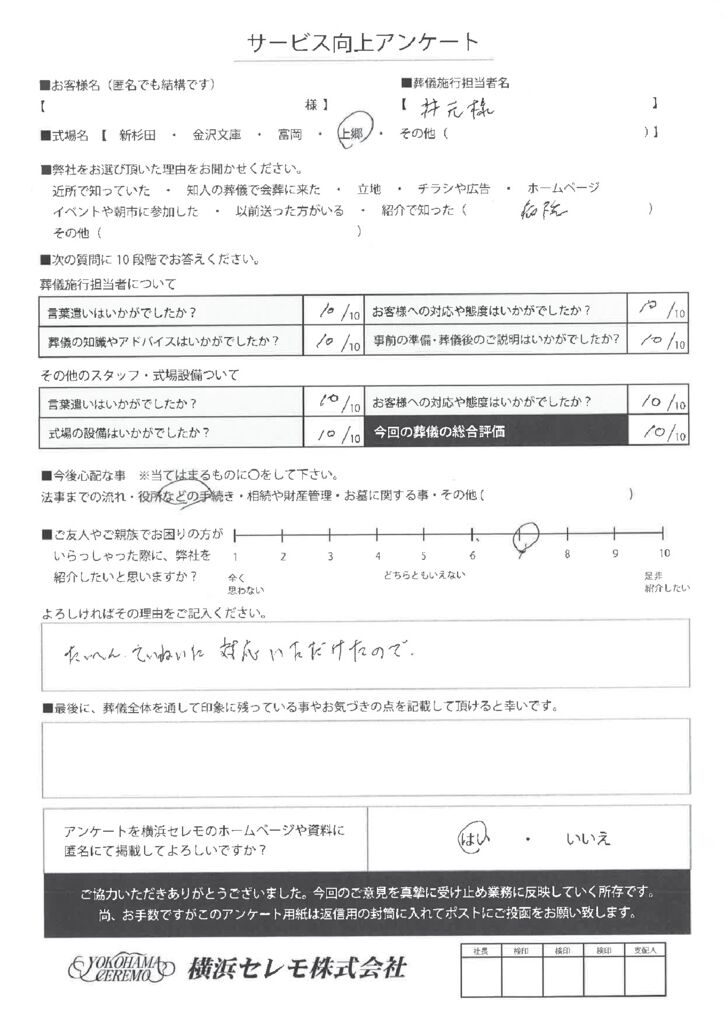 サービス向上アンケート
■お客様名（匿名でも結構です）　■葬儀施行担当者名
【　様】　【井元様　】
■式場名【 新杉田 ・ 金沢文庫 ・ 富岡 ・ 上郷 ・ その他（　）】
■弊社をお選び頂いた理由をお聞かせください。
近所で知っていた ・ 知人の葬儀で会葬に来た ・ 立地 ・ チラシや広告 ・ ホームページ
イベントや朝市に参加した ・ 以前送った方がいる ・ 紹介で知った（ 病院 ）
その他（　）
■次の質問に 10 段階でお答えください。
葬儀施行担当者について
言葉遣いはいかがでしたか？ 10/10 お客様への対応や態度はいかがでしたか？ 10/10
葬儀の知識やアドバイスはいかがでしたか？ 10/10 事前の準備・葬儀後のご説明はいかがでしたか？ 10/10
その他のスタッフ・式場設備ついて
言葉遣いはいかがでしたか？ 10/10 お客様への対応や態度はいかがでしたか？ 10/10
式場の設備はいかがでしたか？ 10/10 今回の葬儀の総合評価 10/10
■今後心配な事　※当てはまるものに〇をして下さい。
法事までの流れ・役所などの手続き・相続や財産管理・お墓に関する事・その他（　）
■ご友人やご親族でお困りの方が
いらっしゃった際に、弊社を
紹介したいと思いますか？
1 2 3 4 5 6 7 8 9 10
全く思わない　どちらともいえない　是非紹介したい
よろしければその理由をご記入ください。
たいへん ていねいに 対応いただけたので.
■最後に、葬儀全体を通して印象に残っている事やお気づきの点を記載して頂けると幸いです。
アンケートを横浜セレモのホームページや資料に
匿名にて掲載してよろしいですか？
はい ・ いいえ
ご協力いただきありがとうございました。今回のご意見を真摯に受け止め業務に反映していく所存です。
尚、お手数ですがこのアンケート用紙は返信用の封筒に入れてポストにご投函をお願い致します。
YOKOHAMA CEREMO 横浜セレモ株式会社
社長 検印 検印 検印 支配人